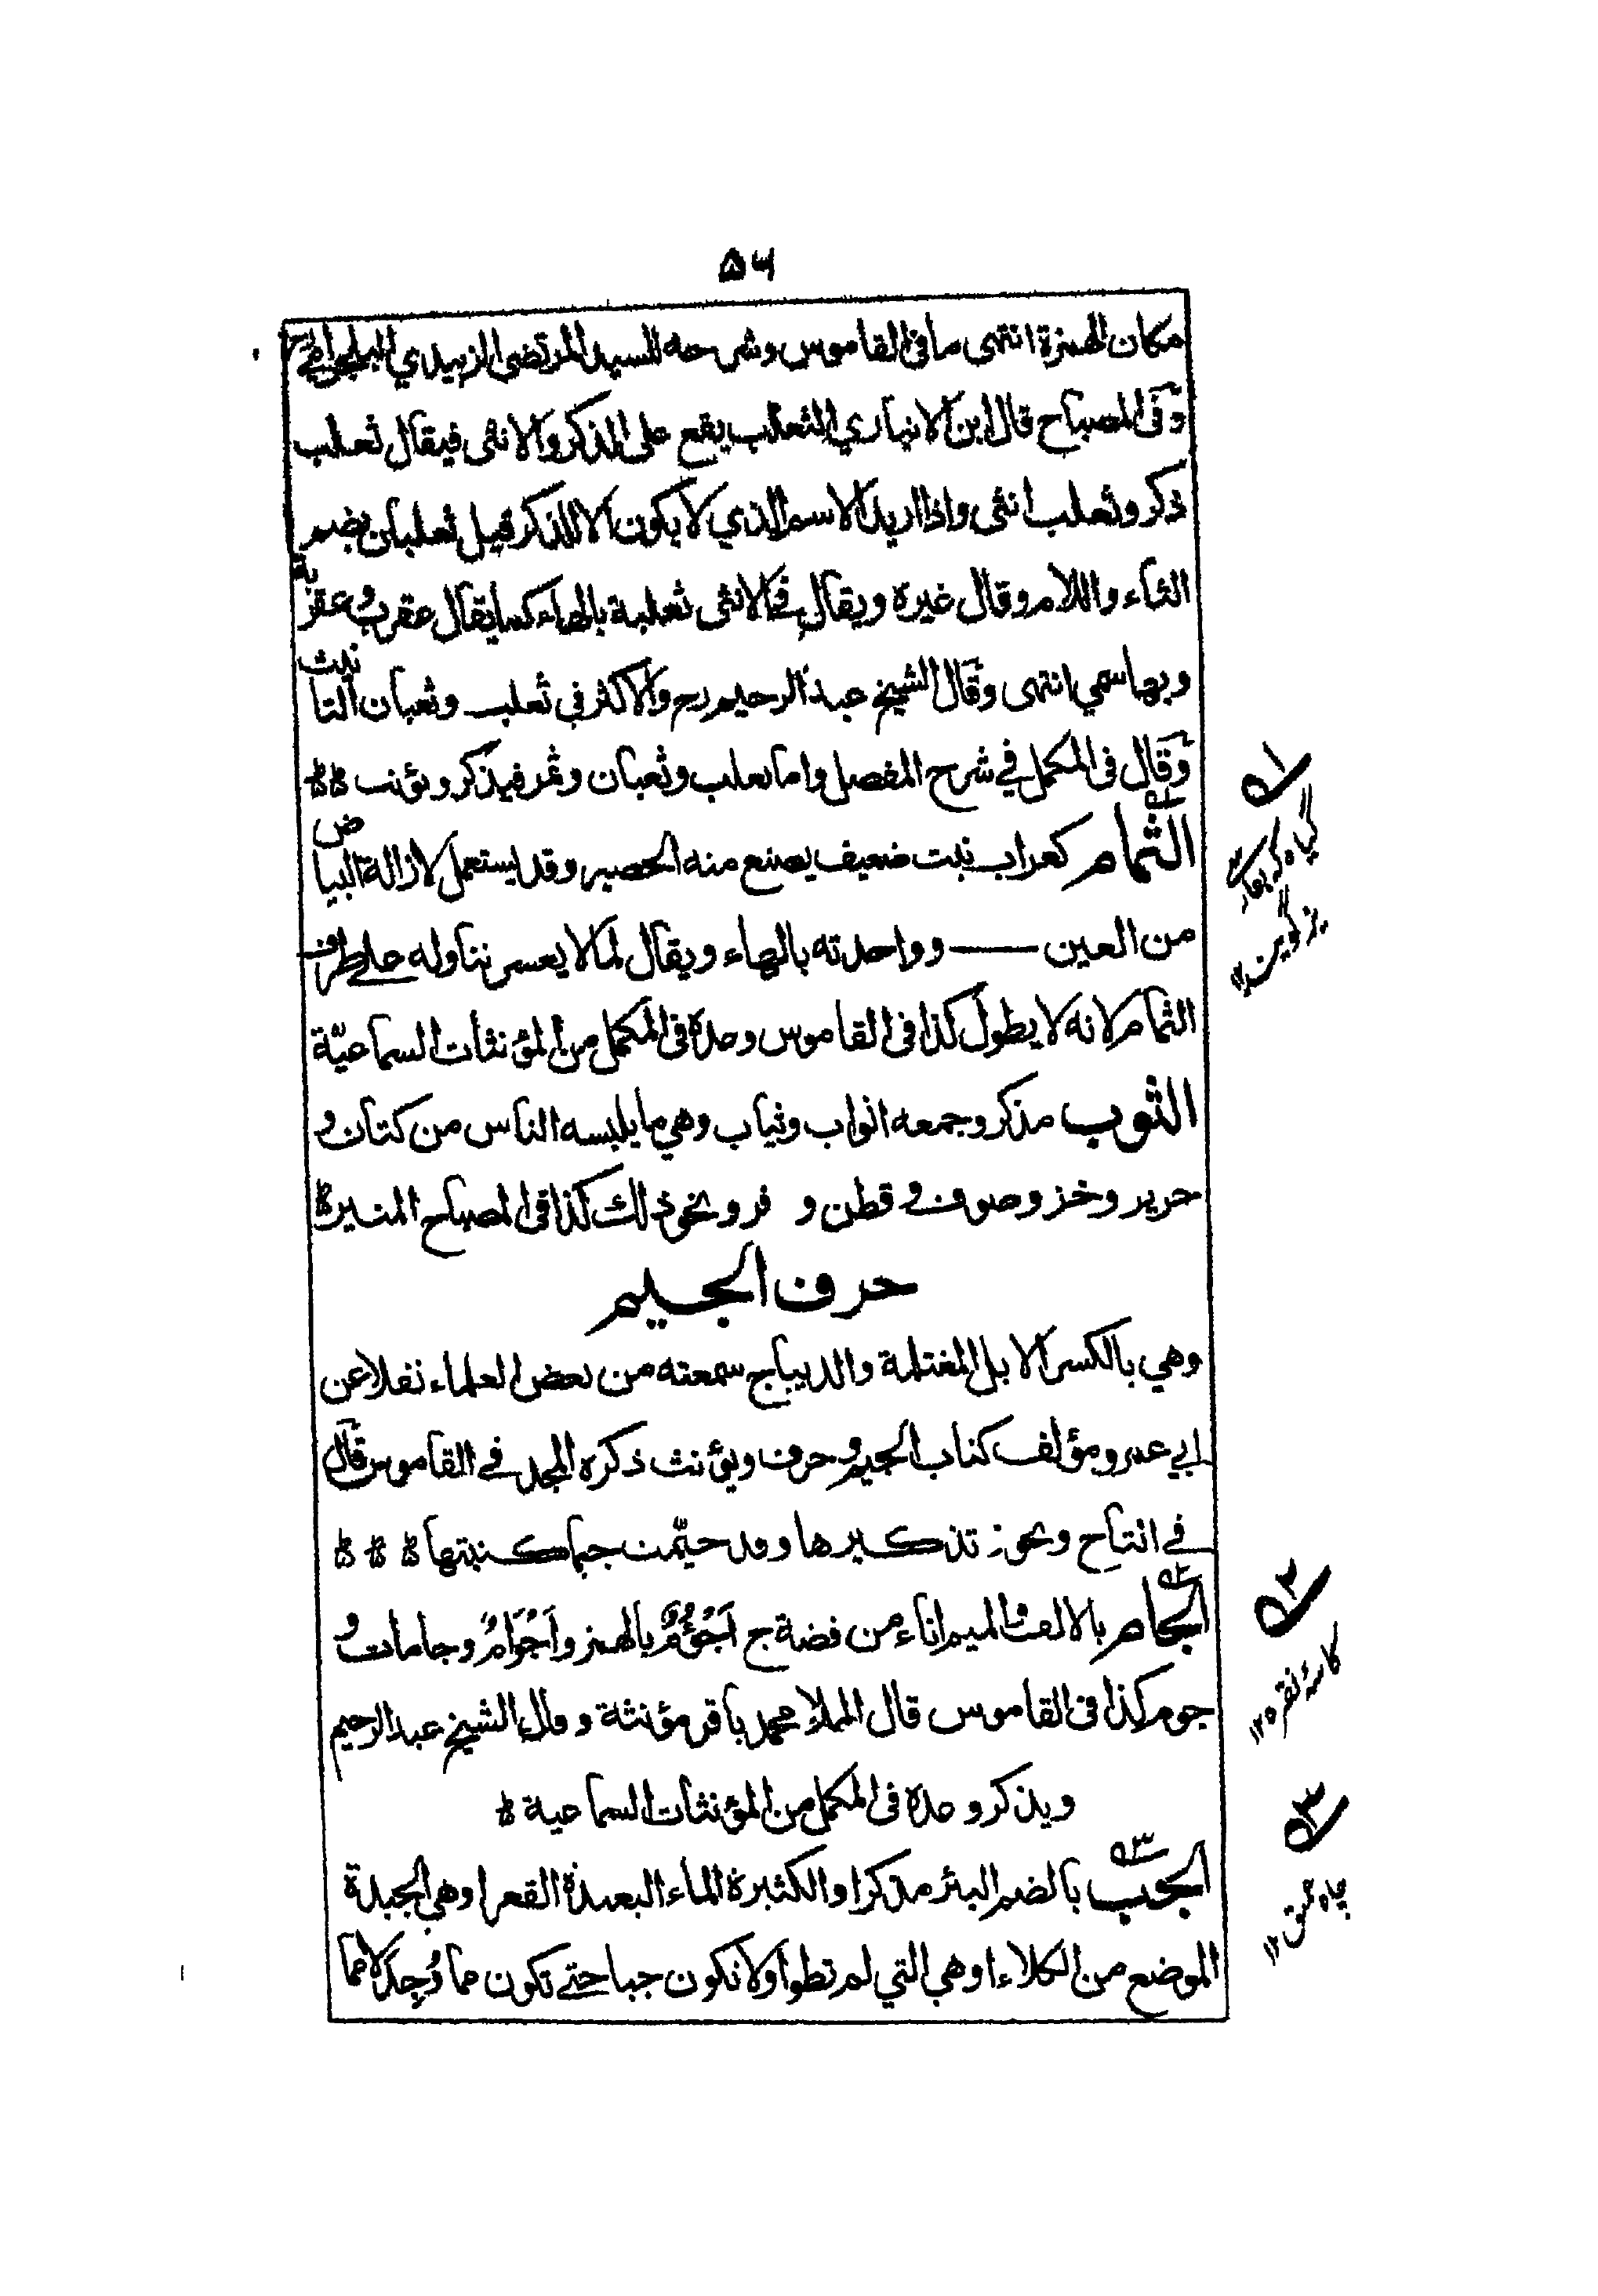 ٥٦
مكان الهمزة انتهى ما فى القاموس وشرحه للسيد المرتضى الزبيدي
وفى المصباح قال ابن الانباري الثعلب يقع على المذكر والانثى فيقال ثعلب
ذكر وثعلب انثى واذا اريد الاسم الذي لا يكون الا للذكر قيل ثعلبان بضم
الثاء واللام وقال غيره ويقال فى الانثى ثعلبة بالهاء كما يقال عقرب وعقربة
وبها سمي انتهى وقال الشيخ عبد الرحيم رح والاكثر في ثعلب وثعبان التانيث
وقال فى المكمل في شرح المفصل واما ثعلب وثعبان وثمر فيذكر ويؤنث
الثمام كغراب نبت ضعيف يصنع منه الحصير وقد يستعمل لازالة البياض
من العين ــــ وواحدته بالهاء ويقال لما لا يعسر تناوله على طرف
الثمام لانه لا يطول كذا فى القاموس وعده فى المكمل من المؤنثات السماعيّة
الثوب مذكر وجمعه اثواب وثياب وهي ما يلبسه الناس من كتان و
حرير وخز وصوف وقطن و فرو ونحو ذلك كذا فى المصباح المنير
حرف الجيم
وهي بالكسر الابل المغتلمة والديباج سمعته من بعض العلماء نقلا عن
ابي عمرو مؤلف كتاب الجيم وحرف ويؤنث ذكره المجد في القاموس قال
في انتاح ويجوز تذكيرها وقد جيّمت جيما كتبتها
الجام بالالف والميم اناء من فضة ج اَجْؤُمٌ بالهمز واَجْوَامٌ وجامات و
جوم كذا فى القاموس قال الملا محمد باقر مؤنثة وقال الشيخ عبد الرحيم
ويذكر وعده فى المكمل من المؤنثات السماعية
الجب بالضم البئر مذكر او الكثيرة الماء البعيدة القعر او هي الجيدة
الموضع من الكلاء او هي التي لم تطو او لا تكون جبا حتے تكون مما وُجِدَ لا مما
٥١
گياه كه بفارسى
يز گويند ١٢
٥٢
كاسۀ نقره ١٢
٥٣
چاه عمق ١٢